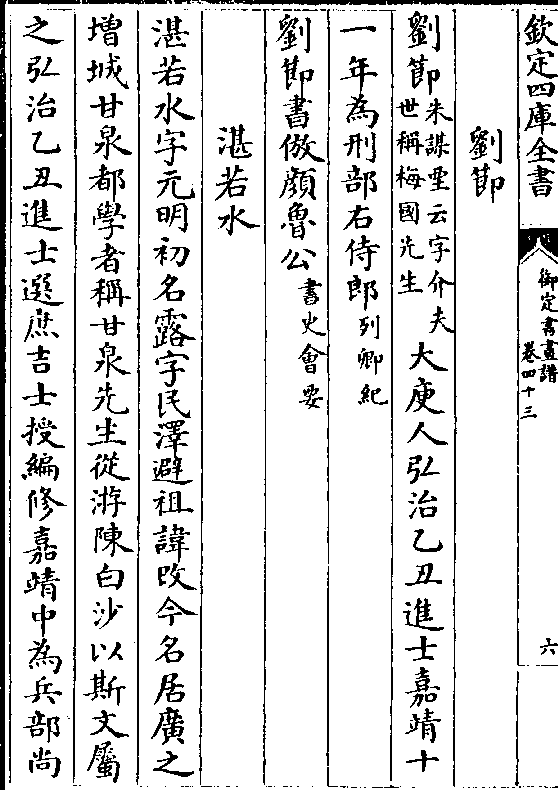 欽定四庫全書
御定書畫譜
卷四十三
六
劉節
劉節朱謀㙔云字介夫世稱梅國先生大庾人弘治乙丑進士嘉靖十
一年為刑部右侍郎列卿紀
劉節書倣顔魯公書史會要
湛若水
湛若水字元明初名露字民澤避祖諱改今名居廣之
增城甘泉都學者稱甘泉先生從游陳白沙以斯文屬
之弘治乙丑進士選庶吉士授編修嘉靖中為兵部尚